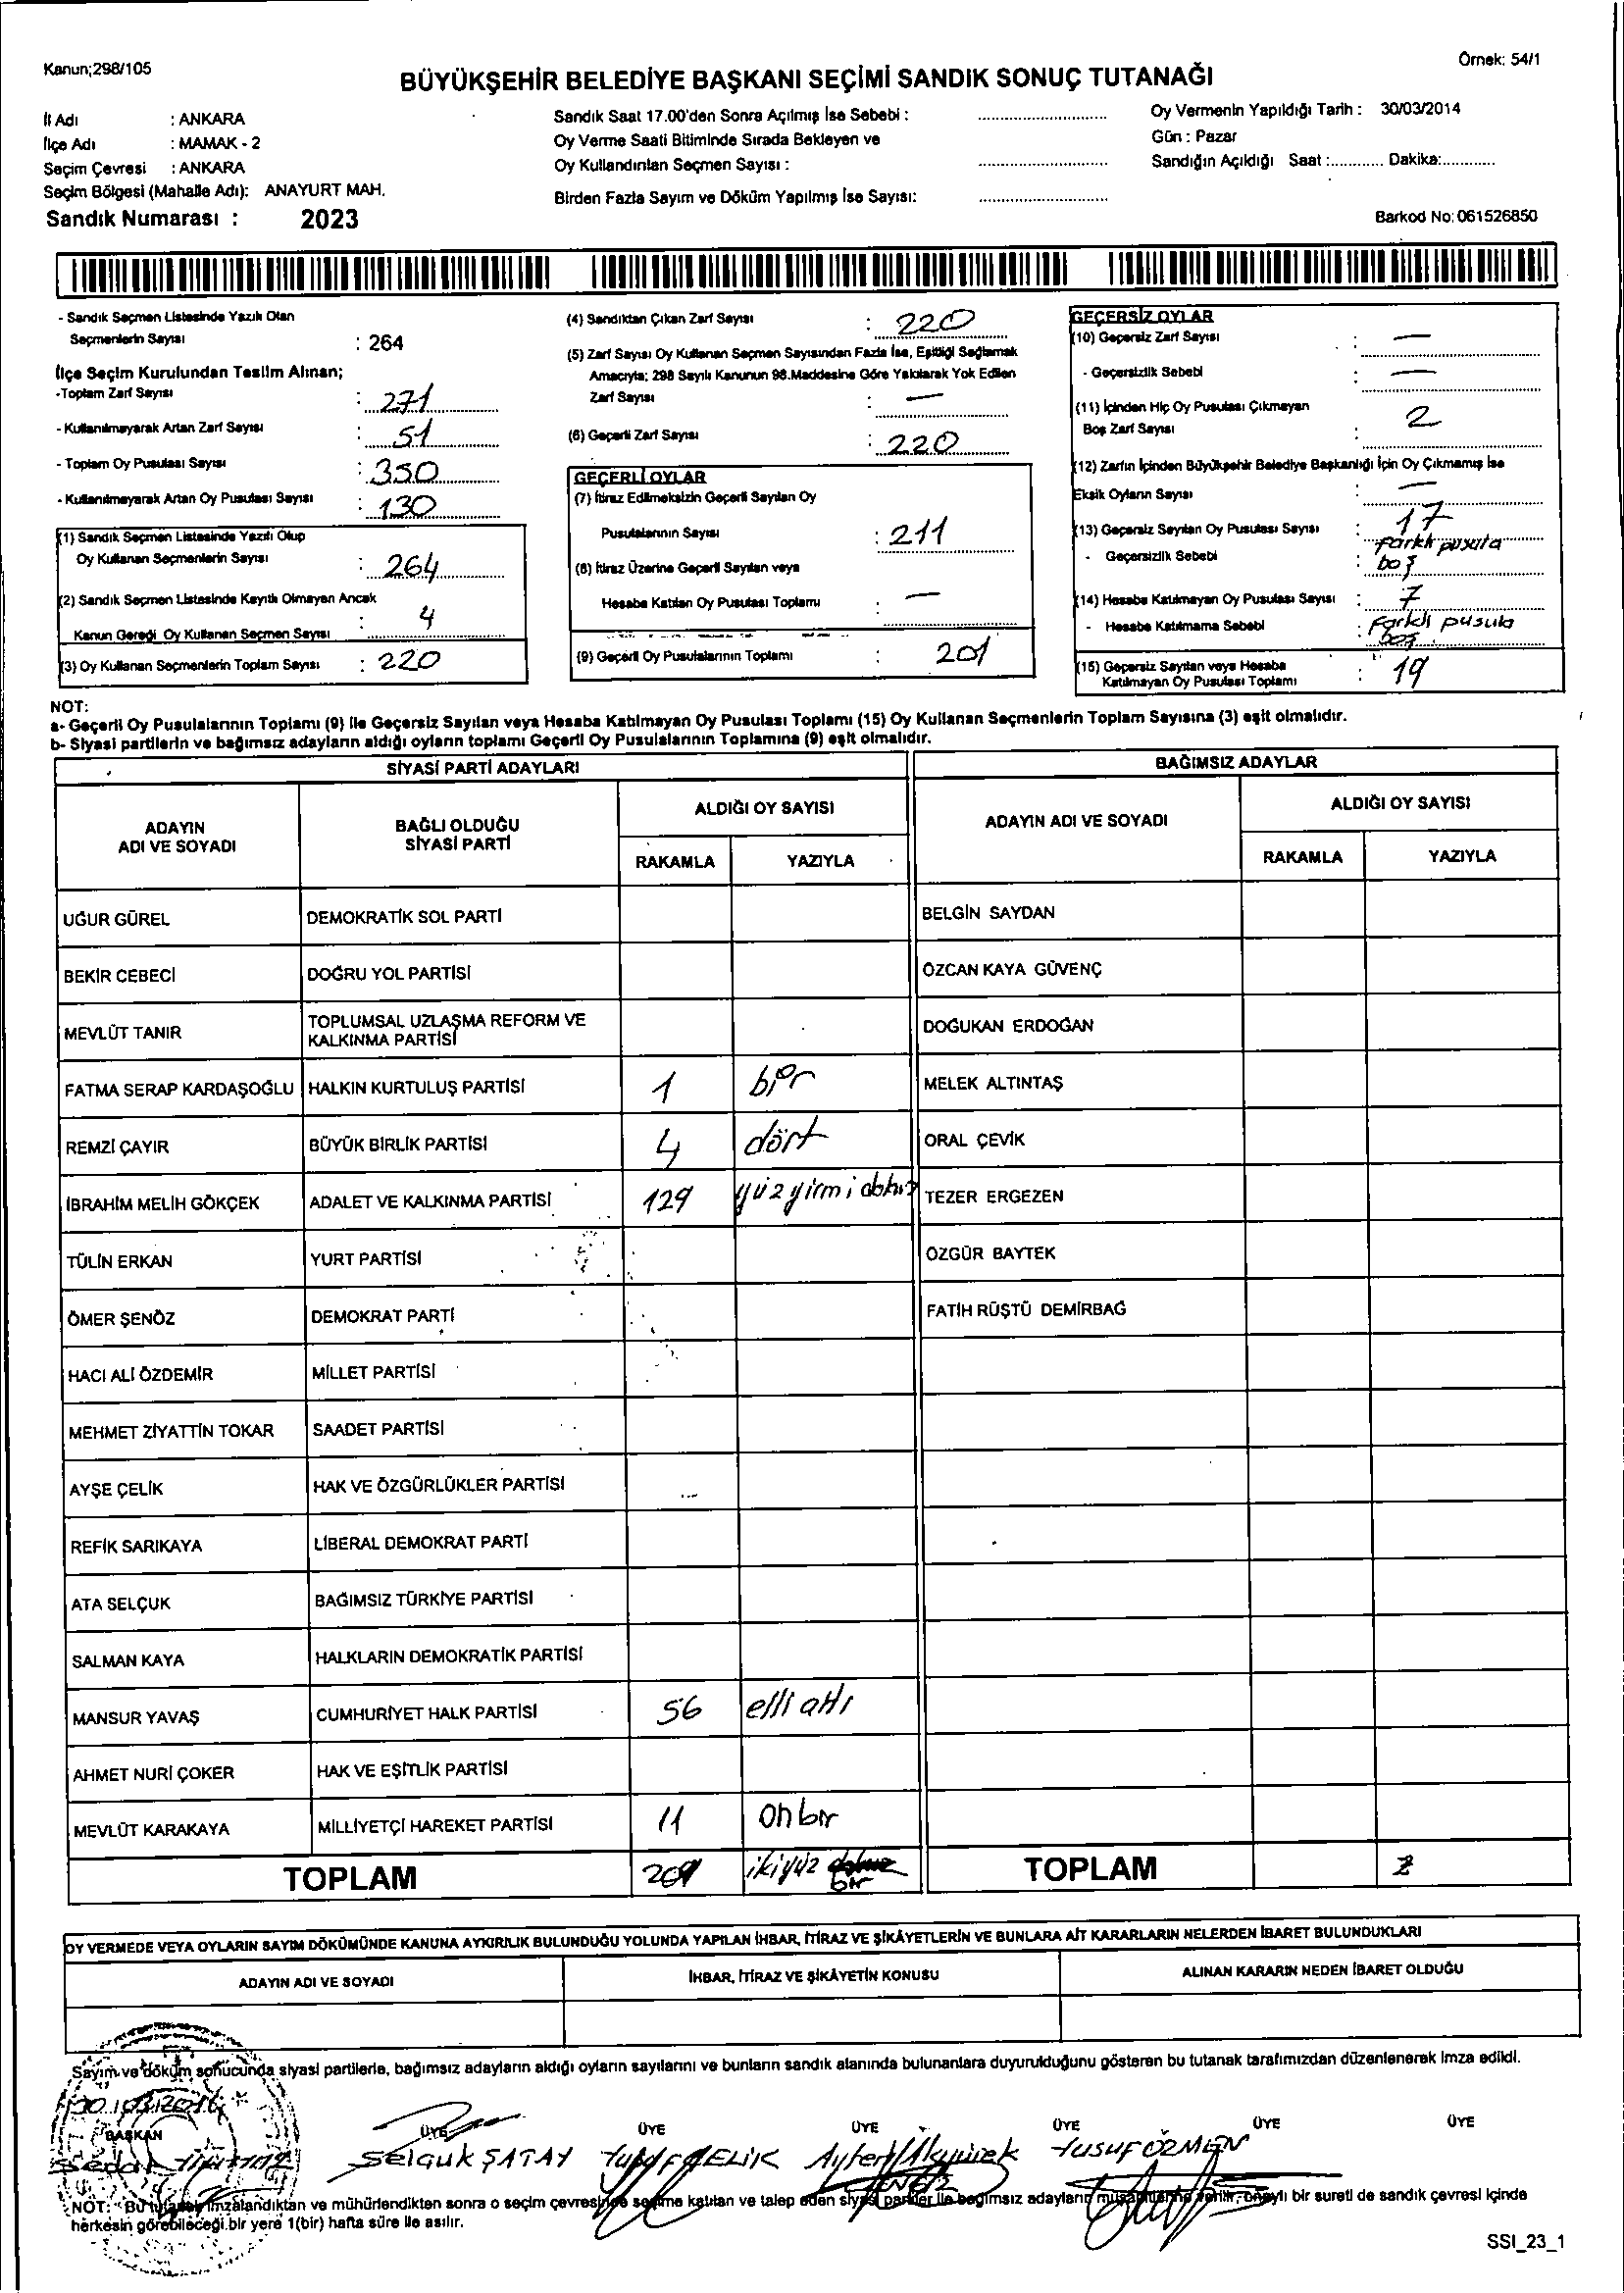 Kanun;298/105
Örnek: 54/1
BÜYÜKŞEHİR BELEDİYE BAŞKANI SEÇİMİ SANDIK SONUÇ TUTANAĞI
İl Adı : ANKARA
İlçe Adı : MAMAK - 2
Seçim Çevresi : ANKARA
Seçim Bölgesi (Mahalle Adı): ANAYURT MAH.
Sandık Numarası : 2023
Sandık Saat 17.00'den Sonra Açılmış İse Sebebi :
Oy Verme Saati Bitiminde Sırada Bekleyen ve
Oy Kullandırılan Seçmen Sayısı :
Birden Fazla Sayım ve Döküm Yapılmış İse Sayısı:
Oy Vermenin Yapıldığı Tarih : 30/03/2014
Gün : Pazar
Sandığın Açıldığı Saat :............ Dakika:............
Barkod No: 061526850
- Sandık Seçmen Listesinde Yazılı Olan
Seçmenlerin Sayısı : 264
İlçe Seçim Kurulundan Teslim Alınan;
-Toplam Zarf Sayısı : 271
- Kullanılmayarak Artan Zarf Sayısı : 51
- Toplam Oy Pusulası Sayısı : 350
- Kullanılmayarak Artan Oy Pusulası Sayısı : 130
(1) Sandık Seçmen Listesinde Yazılı Olup
Oy Kullanan Seçmenlerin Sayısı : 264
(2) Sandık Seçmen Listesinde Kayıtlı Olmayan Ancak
Kanun Gereği Oy Kullanan Seçmen Sayısı : 4
(3) Oy Kullanan Seçmenlerin Toplam Sayısı : 220
(4) Sandıktan Çıkan Zarf Sayısı : 220
(5) Zarf Sayısı Oy Kullanan Seçmen Sayısından Fazla İse, Eşitliği Sağlamak
Amacıyla; 298 Sayılı Kanunun 98.Maddesine Göre Yakılarak Yok Edilen
Zarf Sayısı : —
(6) Geçerli Zarf Sayısı : 220
GEÇERLİ OYLAR
(7) İtiraz Edilmeksizin Geçerli Sayılan Oy
Pusulalarının Sayısı : 211
(8) İtiraz Üzerine Geçerli Sayılan veya
Hesaba Katılan Oy Pusulası Toplamı : —
(9) Geçerli Oy Pusulalarının Toplamı : 201
GEÇERSİZ OYLAR
(10) Geçersiz Zarf Sayısı : —
- Geçersizlik Sebebi : —
(11) İçinden Hiç Oy Pusulası Çıkmayan
Boş Zarf Sayısı : 2
(12) Zarfın İçinden Büyükşehir Belediye Başkanlığı İçin Oy Çıkmamış İse
Eksik Oyların Sayısı : —
(13) Geçersiz Sayılan Oy Pusulası Sayısı : 17
- Geçersizlik Sebebi : farklı pusula
boş
(14) Hesaba Katılmayan Oy Pusulası Sayısı : 7
- Hesaba Katılmama Sebebi : Farklı pusula
boş
(15) Geçersiz Sayılan veya Hesaba
Katılmayan Oy Pusulası Toplamı : 19
NOT:
a- Geçerli Oy Pusulalarının Toplamı (9) ile Geçersiz Sayılan veya Hesaba Katılmayan Oy Pusulası Toplamı (15) Oy Kullanan Seçmenlerin Toplam Sayısına (3) eşit olmalıdır.
b- Siyasi partilerin ve bağımsız adayların aldığı oyların toplamı Geçerli Oy Pusulalarının Toplamına (9) eşit olmalıdır.
SİYASİ PARTİ ADAYLARI
BAĞIMSIZ ADAYLAR
ADAYIN
ADI VE SOYADI
BAĞLI OLDUĞU
SİYASİ PARTİ
ALDIĞI OY SAYISI
RAKAMLA YAZIYLA
ADAYIN ADI VE SOYADI
ALDIĞI OY SAYISI
RAKAMLA YAZIYLA
UĞUR GÜREL DEMOKRATİK SOL PARTİ BELGİN SAYDAN
BEKİR CEBECİ DOĞRU YOL PARTİSİ ÖZCAN KAYA GÜVENÇ
MEVLÜT TANIR TOPLUMSAL UZLAŞMA REFORM VE
KALKINMA PARTİSİ DOĞUKAN ERDOĞAN
FATMA SERAP KARDAŞOĞLU HALKIN KURTULUŞ PARTİSİ 1 bir MELEK ALTINTAŞ
REMZİ ÇAYIR BÜYÜK BİRLİK PARTİSİ 4 dört ORAL ÇEVİK
İBRAHİM MELİH GÖKÇEK ADALET VE KALKINMA PARTİSİ 129 yüz yirmi dokuz TEZER ERGEZEN
TÜLİN ERKAN YURT PARTİSİ ÖZGÜR BAYTEK
ÖMER ŞENÖZ DEMOKRAT PARTİ FATİH RÜŞTÜ DEMİRBAĞ
HACI ALİ ÖZDEMİR MİLLET PARTİSİ
MEHMET ZİYATTİN TOKAR SAADET PARTİSİ
AYŞE ÇELİK HAK VE ÖZGÜRLÜKLER PARTİSİ
REFİK SARIKAYA LİBERAL DEMOKRAT PARTİ
ATA SELÇUK BAĞIMSIZ TÜRKİYE PARTİSİ
SALMAN KAYA HALKLARIN DEMOKRATİK PARTİSİ
MANSUR YAVAŞ CUMHURİYET HALK PARTİSİ 56 elli altı
AHMET NURİ ÇOKER HAK VE EŞİTLİK PARTİSİ
MEVLÜT KARAKAYA MİLLİYETÇİ HAREKET PARTİSİ 11 on bir
TOPLAM 201 ikiyüz bir TOPLAM
OY VERMEDE VEYA OYLARIN SAYIM DÖKÜMÜNDE KANUNA AYKIRILIK BULUNDUĞU YOLUNDA YAPILAN İHBAR, İTİRAZ VE ŞİKÂYETLERİN VE BUNLARA AİT KARARLARIN NELERDEN İBARET BULUNDUKLARI
ADAYIN ADI VE SOYADI İHBAR, İTİRAZ VE ŞİKÂYETİN KONUSU ALINAN KARARIN NEDEN İBARET OLDUĞU
Sayım ve döküm sonucunda siyasi partilerle, bağımsız adayların aldığı oyların sayılarını ve bunların sandık alanında bulunanlara duyurulduğunu gösteren bu tutanak tarafımızdan düzenlenerek imza edildi.
30.03.2014
BAŞKAN ÜYE ÜYE ÜYE ÜYE ÜYE ÜYE
Sedat Selçuk ŞATAY ÇELİK Ayfer Akyürek Yusuf ÖZMEN
NOT: Bu tutanak imzalandıktan ve mühürlendikten sonra o seçim çevresinde seçime katılan ve talep eden siyasi partiler ile bağımsız adayların müşahitlerine verilir, onaylı bir sureti de sandık çevresi içinde
herkesin görebileceği bir yere 1(bir) hafta süre ile asılır.
SSI_23_1